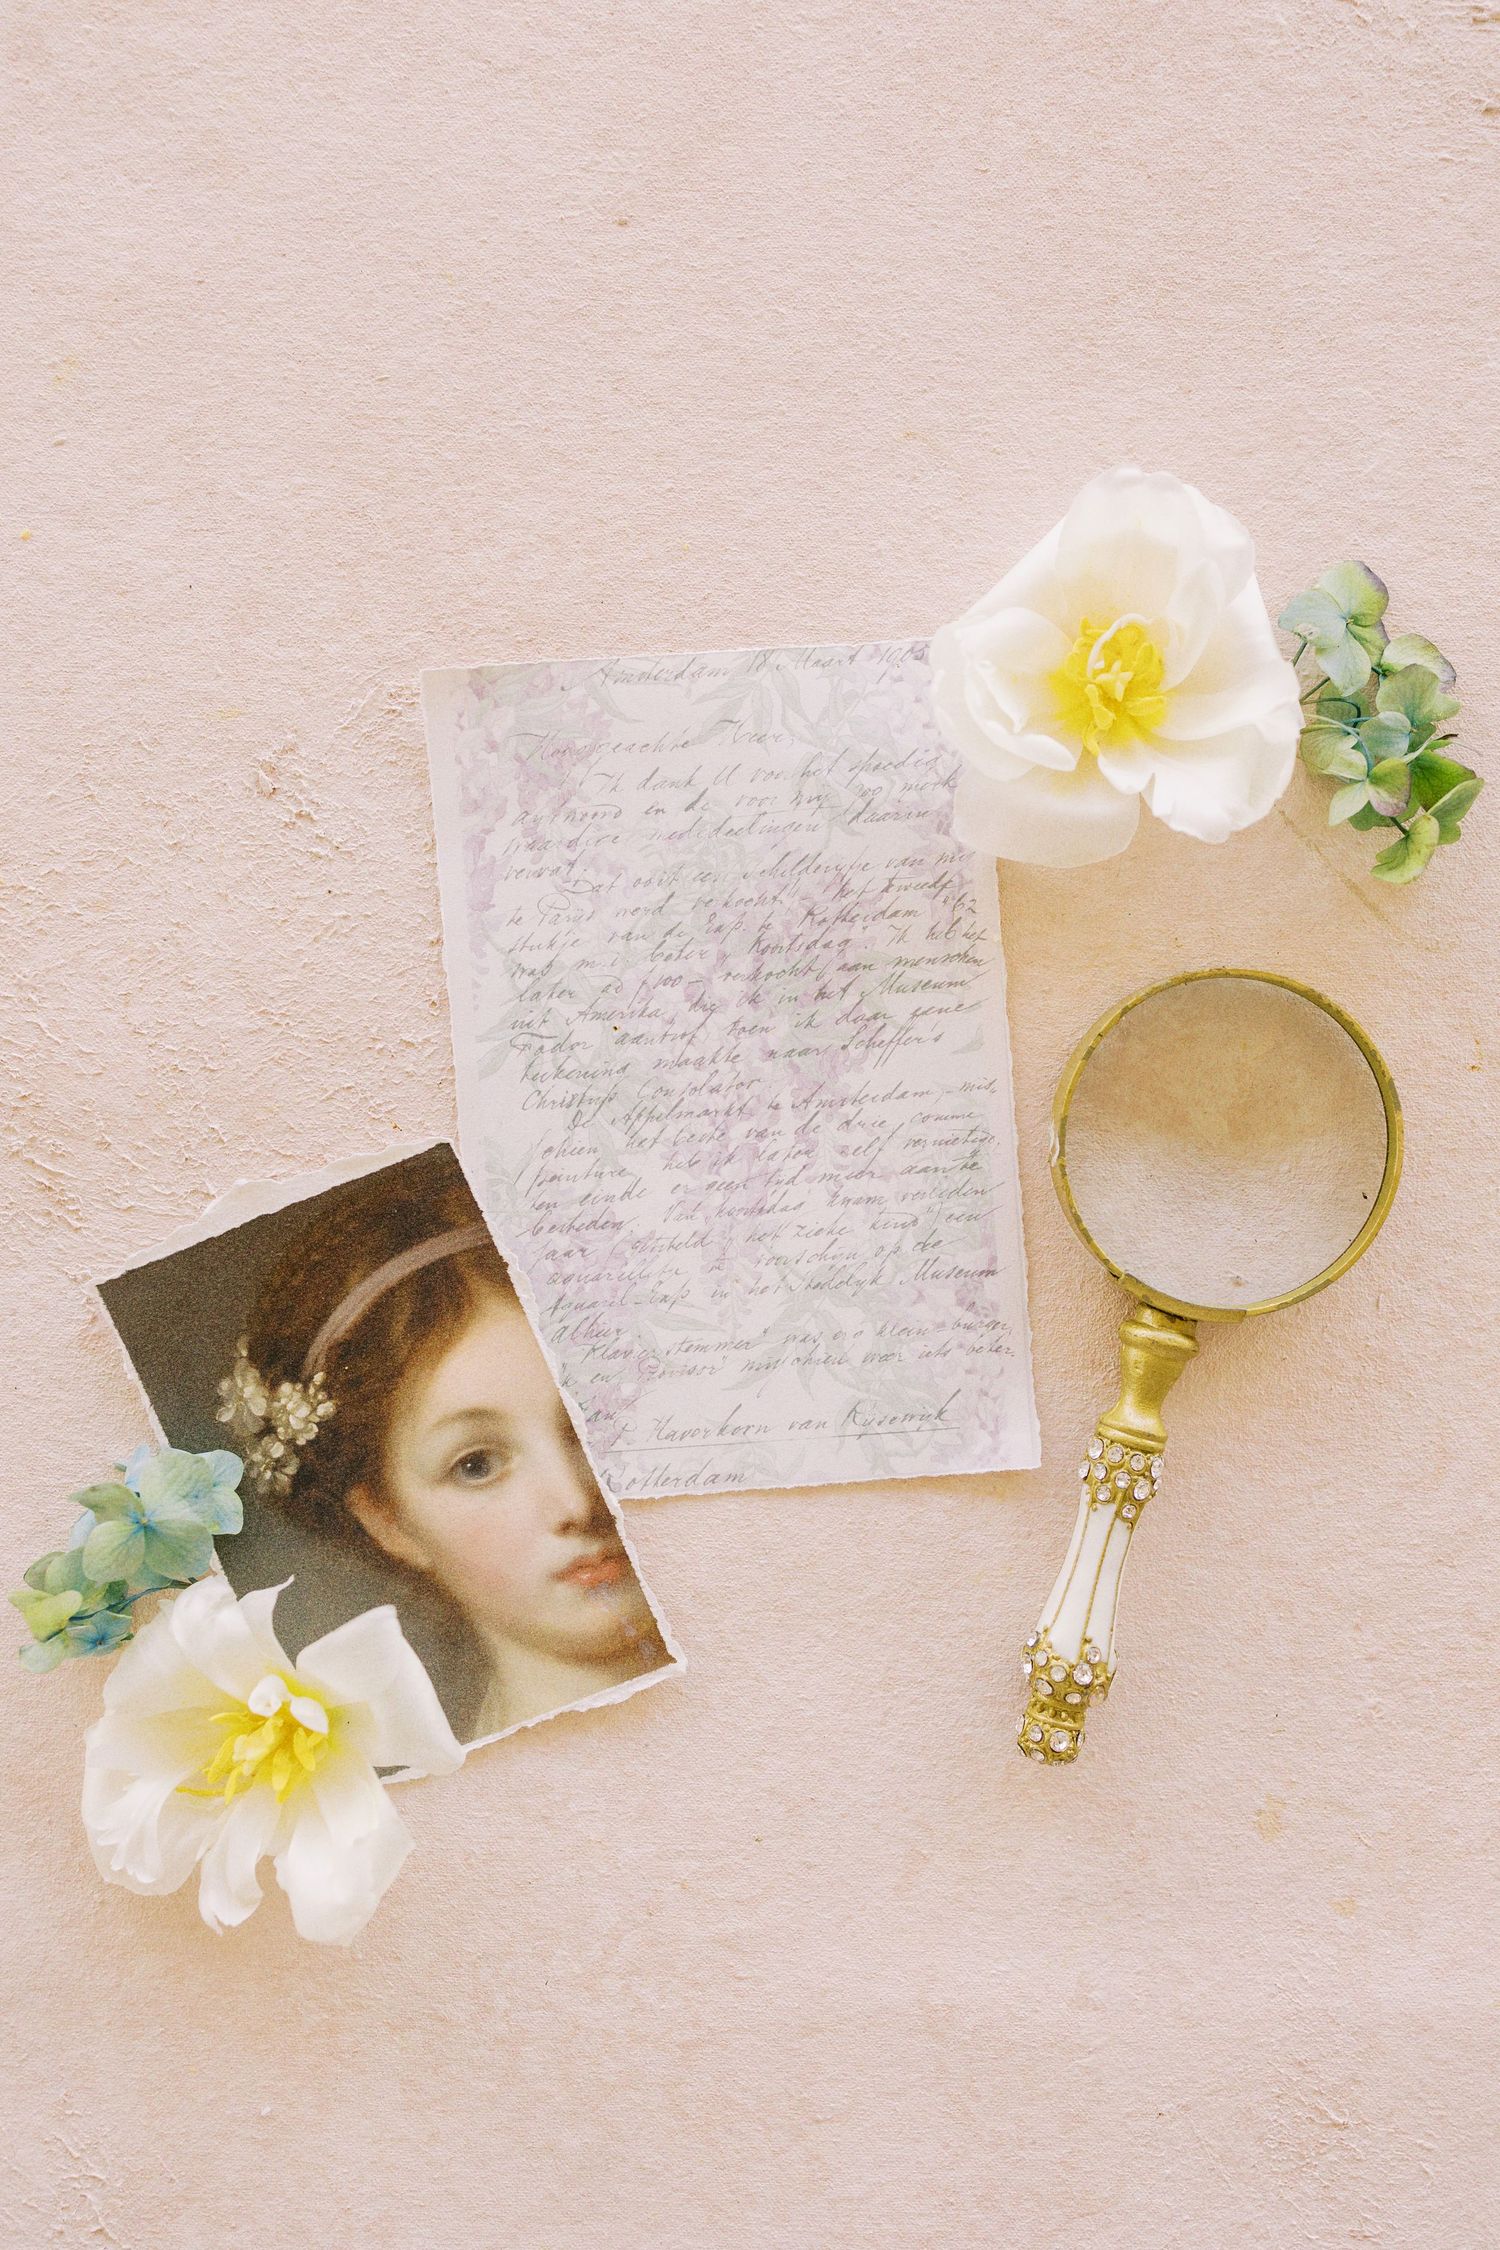 Amsterdam 18 Maart 1905
Hooggeachte Heer,
Ik dank U voor het spoedig
antwoord en de voor mij zoo merk
waardige mededeelingen daarin
vervat.
Dat ooit een schilderijtje van mij
te Parijs werd verkocht! - het tweede
stukje van de Exp. te Rotterdam "62
was m.i. beter, "Koortsdag". Ik heb het
later ad f 100 - verkocht aan menschen
uit Amerika, die ik in het Museum
Fodor aantrof, toen ik daar eene
teekening maakte naar Scheffer's
Christus Consolator.
De Appelmarkt te Amsterdam, - mis-
schien het beste van de drie, comme
peinture, heb ik later zelf vernietigd,
ten einde er geen tijd meer aan te
besteden. Van "Koortsdag" kwam verleden
jaar "het zieke kind") een
aquarelletje te voorschijn op de
Aquarel-Exp in het Stedelijk Museum
alhier.
"Klavierstemmer" was zoo klein-burger,
en "Provisor" misschien weer iets beter.
P. Haverkorn van Rijsewijk
Rotterdam